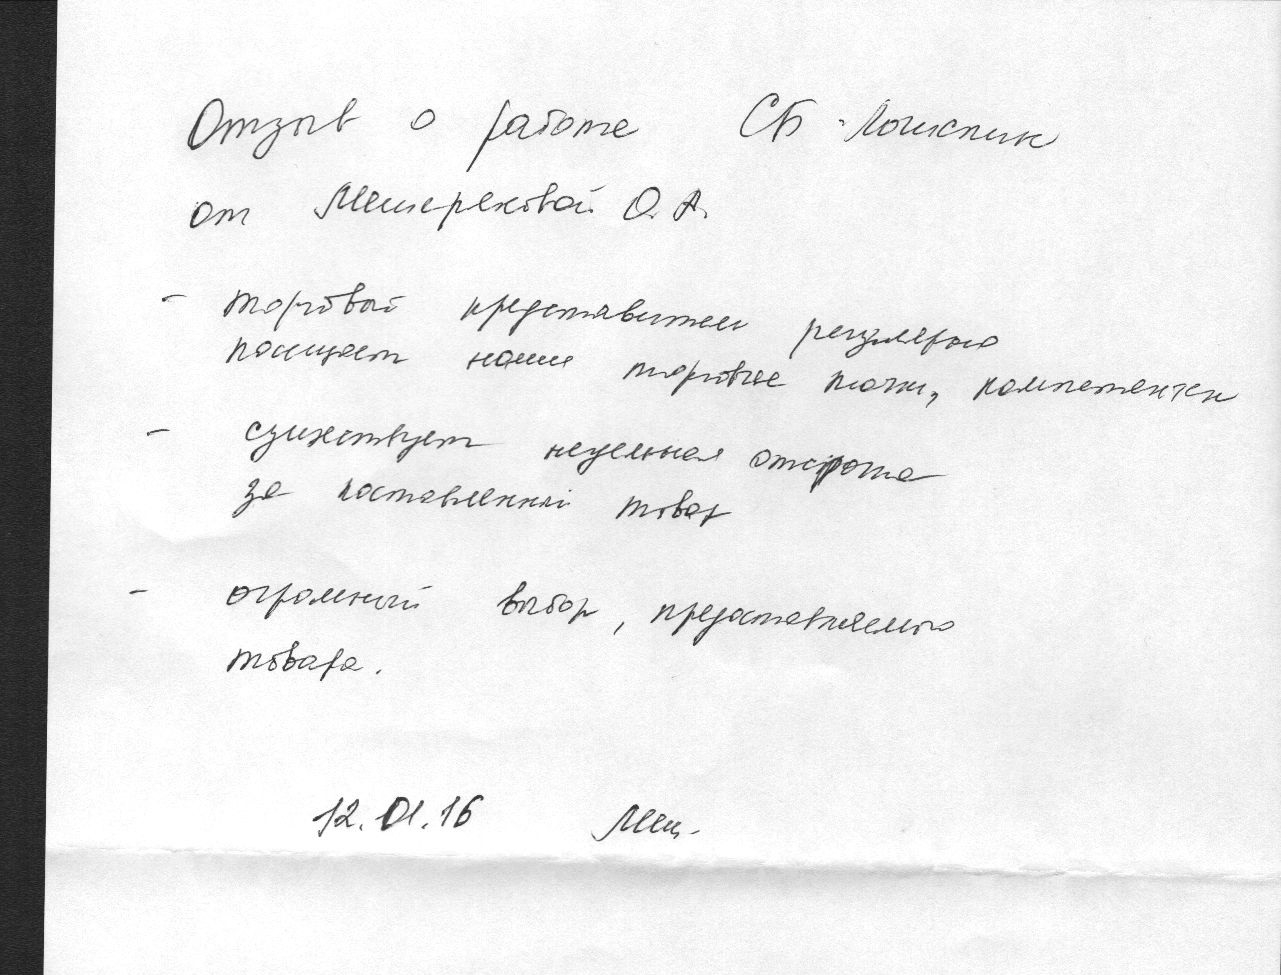 Отзыв о работе СБ-Логистик
от Мещеряковой О.А.
- торговый представитель регулярно
посещает наши торговые точки, компетентен
- существует недельная отсрочка
за поставленный товар
- огромный выбор, предоставляемого
товара.
12.01.16 Мещ.